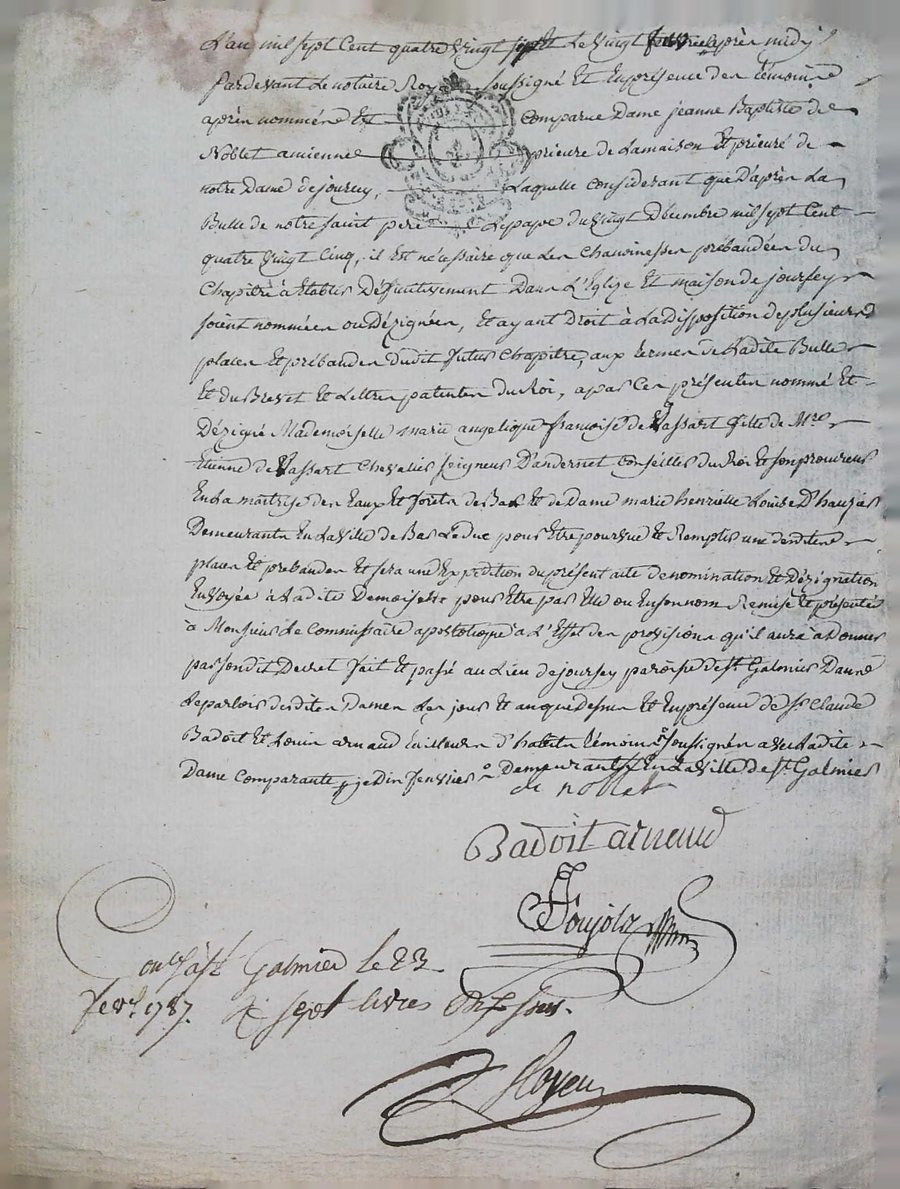 L'an mil sept Cent quatre vingt sept Le vingt feuvrier après midy
Pardevant Le notaire Royal soussigné Et En présence des témoins
après nommés Est Comparue Dame jeanne Baptiste de
Noblet ancienne prieure de Lamaison Et prieuré de
notre Dame de joursey, Laquelle Considerant que D'après La
Bulle de notre saint pere Le pape du vingt Décembre mil sept Cent
quatre vingt Cinq, il Est nécéssaire que Les Chanoinesses prébandées du
Chapitre à Etablir Déffinitivement Dans L'Eglize Et maison de joursey
soient nommées ou Dézignées, Et ayant Droit à La Disposition de plusieurs
places Et prébandes Dudit futur Chapitre, aux termes de Ladite Bulle
Et du Brevet Et Lettres patentes du Roi, a par Ces présentes nommé Et
Dézigné Mademoiselle marie angelique françoise de Vassart fille de Mre
Etienne de Vassart Chevalier seigneur D'andernet Conseiller du Roi Et son procureur
En La maitrise des Eaux Et forêts de Bar Et de Dame marie henriette Louise D'hauzier
Demeurants En La ville de Bar Le duc pour Etre pourvue Et Remplir une desdites
places Et prebandes Et sera une Expédition du présent acte de nomination Et Dézignation
Envoyée à Ladite Demoiselle pour Etre par Elle ou En son nom Remise Et présentée
à Monsieur Le Commissaire apostolique à L'Effet des provisions qu'il aura à Donner
par sondit Decret fait Et passé au Lieu de joursey paroisse de St Galmier Dans
Le parloir desdites Dames Les jour Et an que Dessus Et En présence de Sr Claude
Badoit Et Louis arnaud tailleurs d'habits témoins soussignés avec Ladite
Dame Comparante, je Dis feuvrier Demeurants En La ville de St Galmier
de noblet
Badoit arnaud
Ponjolz
Conlé à St Galmier le 23
fevr. 1787. R sept livres dix sous.